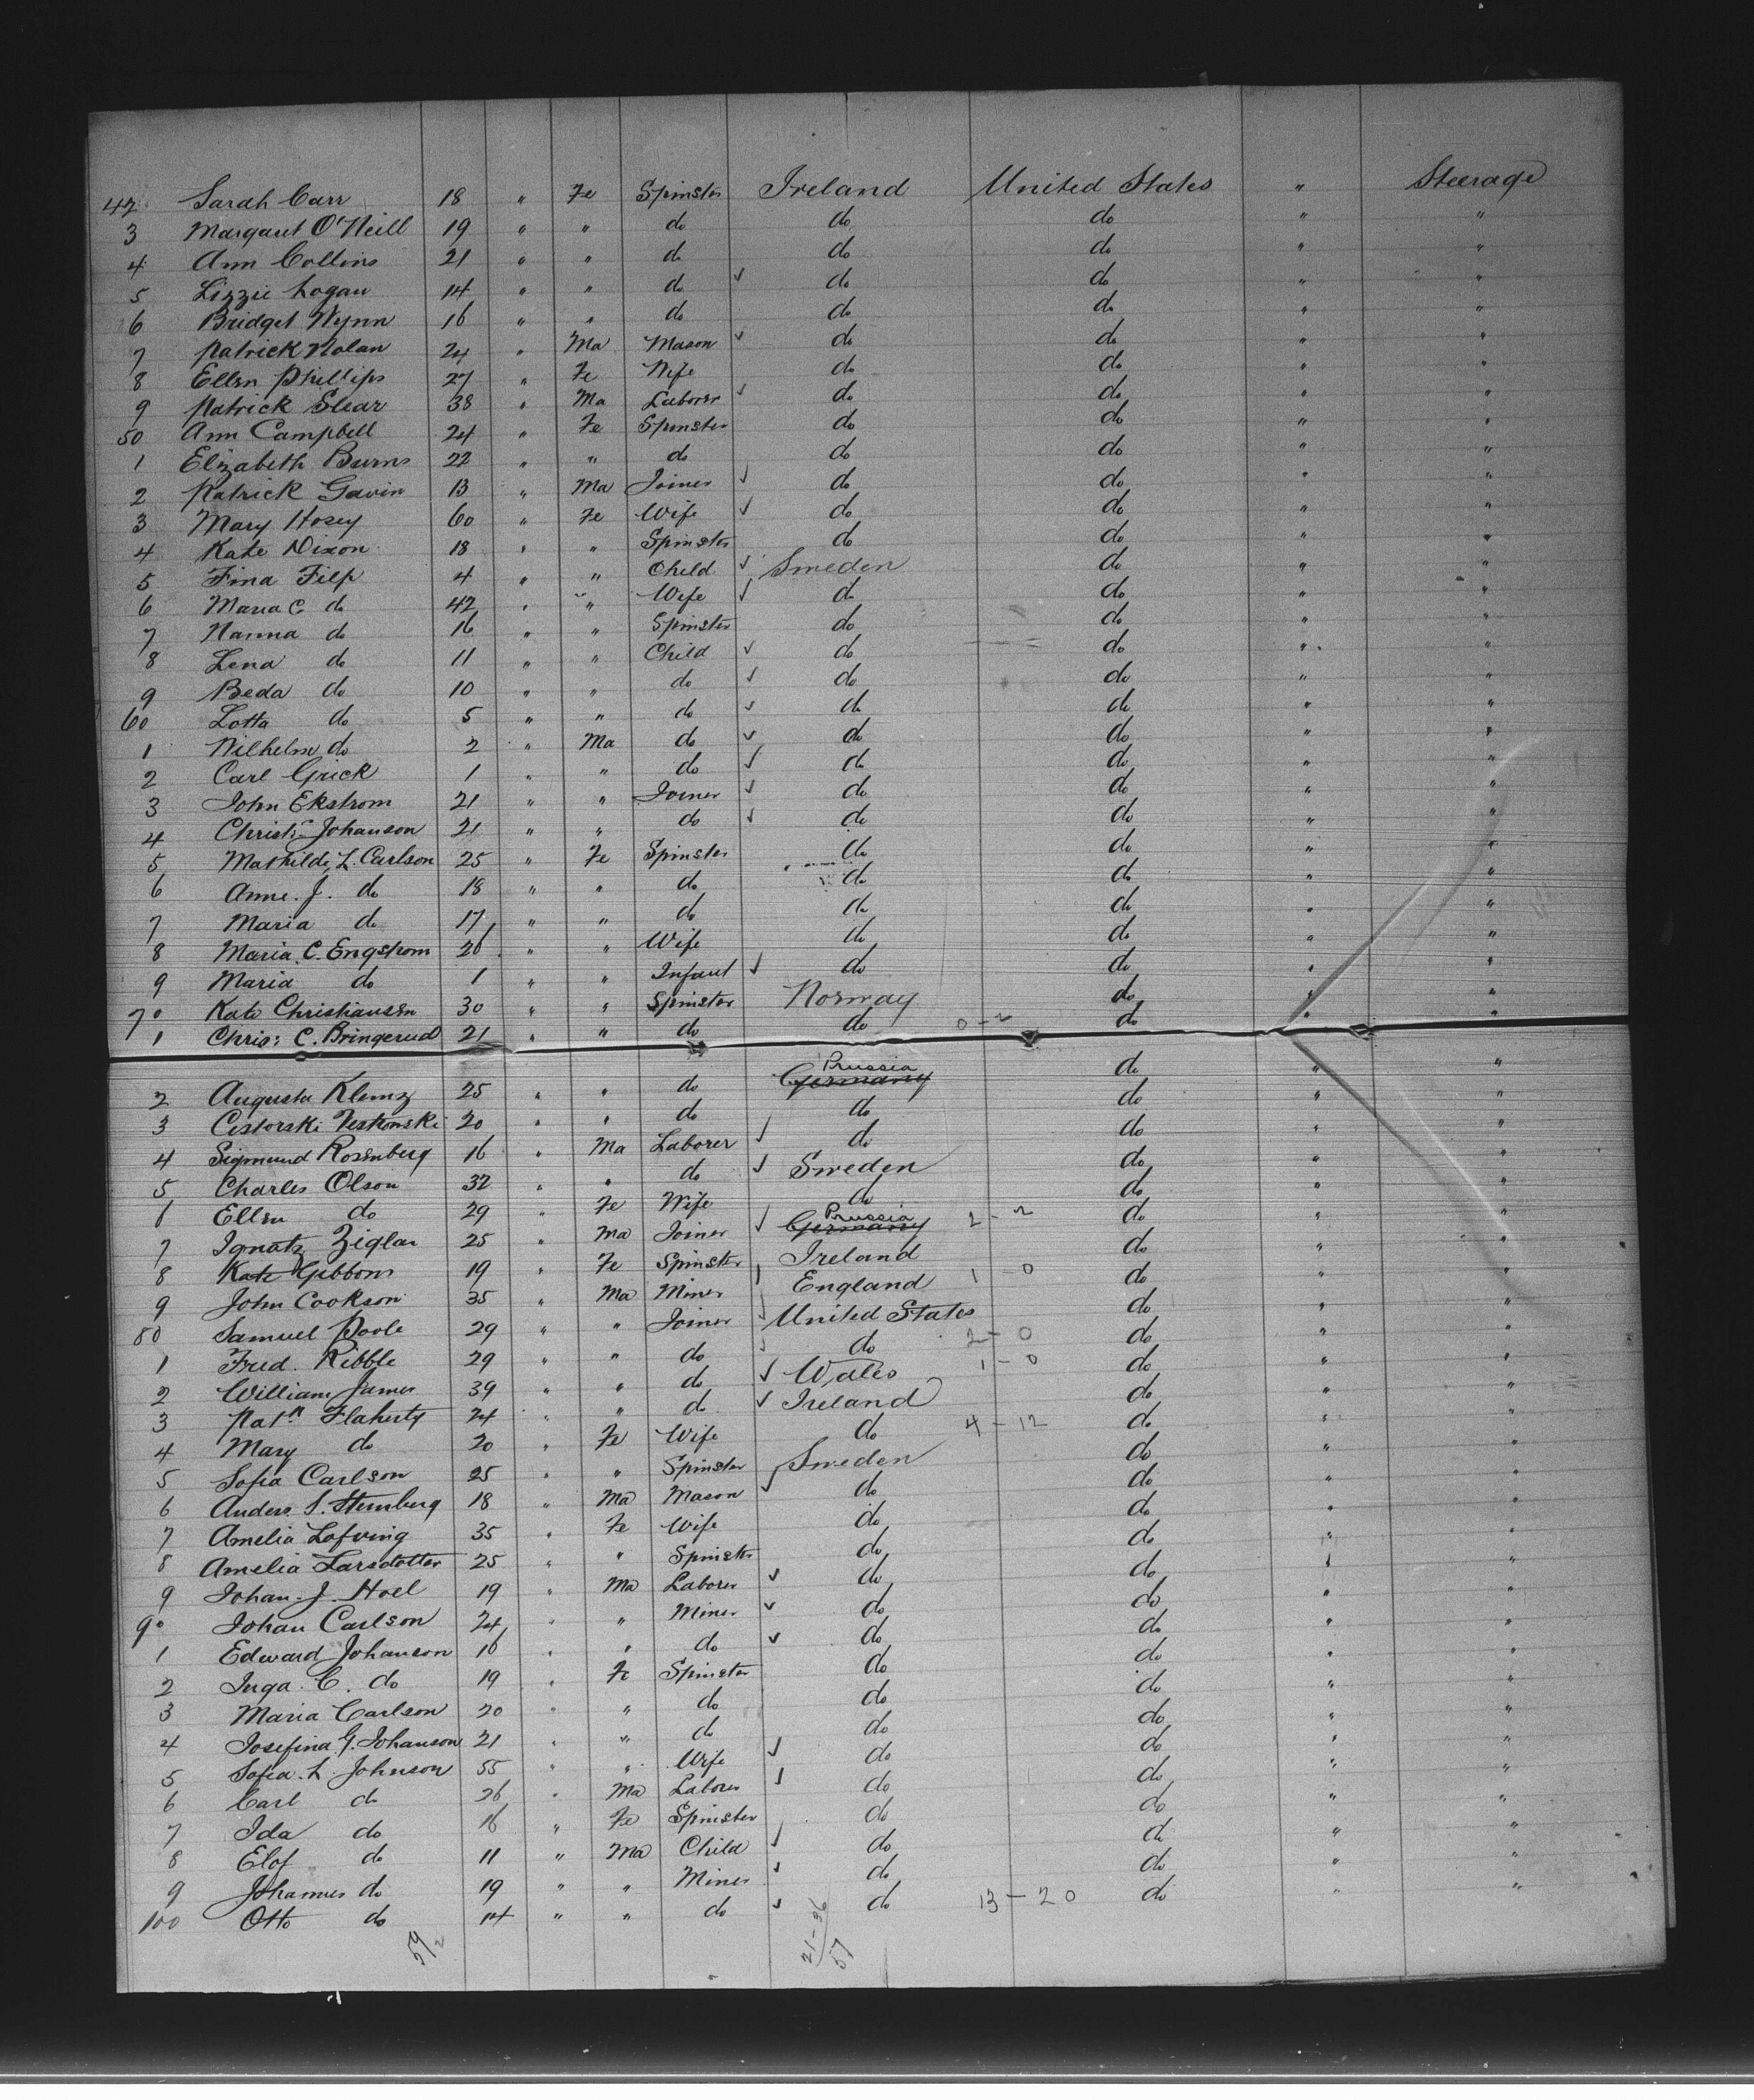 42 Sarah Carr 18 " Fe Spinster Ireland United States " Steerage
3 Margaret O'Neill 19 " " do do do " "
4 Ann Collins 21 " " do do do " "
5 Lizzie Logan 14 " " do ✓ do do " "
6 Bridget Wynn 16 " " do do do " "
7 Patrick Nolan 24 " Ma Mason ✓ do do " "
8 Ellen Phillips 27 " Fe Wife do do " "
9 Patrick Slear 38 " Ma Laborer ✓ do do " "
50 Ann Campbell 24 " Fe Spinster do do " "
1 Elizabeth Burns 22 " " do do do " "
2 Patrick Gavin 13 " Ma Joiner ✓ do do " "
3 Mary Hosey 60 " Fe Wife ✓ do do " "
4 Kate Dixon 18 " " Spinster do do " "
5 Fina Filp 4 " " Child ✓ Sweden do " "
6 Maria C. do 42 " " Wife ✓ do do " "
7 Nanna do 16 " " Spinster do do " "
8 Lena do 11 " " Child ✓ do do " "
9 Beda do 10 " " do ✓ do do " "
60 Lotta do 5 " " do ✓ do do " "
1 Wilhelm do 2 " Ma do ✓ do do " "
2 Carl Grick 1 " " do ✓ do do " "
3 John Ekstrom 21 " " Joiner ✓ do do " "
4 Christn Johanson 21 " " do ✓ do do " "
5 Mathilde L. Carlson 25 " Fe Spinster do do " "
6 Anne. J. do 18 " " do do do " "
7 Maria do 17 " " do do do " "
8 Maria. C. Engstrom 26 " " Wife do do " "
9 Maria do 1 " " Infant ✓ do do " "
70 Kate Christiansen 30 " " Spinster Norway do " "
1 Chris: C. Bringerud 21 " " do do 0-2 do " "
2 Augusta Klemz 25 " " do Germany Prussia do " "
3 20 " " do do do " "
4 Sigmund Rosenberg 16 " Ma Laborer ✓ do do " "
5 Charles Olson 32 " " do ✓ Sweden do " "
6 Ellen do 29 " Fe Wife do do " "
7 Ignatz Ziglar 25 " Ma Joiner ✓ Germany Prussia 2-2 do " "
8 Kate Gibbons 19 " Fe Spinster Ireland do " "
9 John Cookson 35 " Ma Miner ✓ England 1-0 do " "
80 Samuel Poole 29 " " Joiner ✓ United States do " "
1 Fred. Ribble 29 " " do ✓ do 2-0 do " "
2 William James 39 " " do ✓ Wales 1-0 do " "
3 Patk Flaherty 24 " " do ✓ Ireland do " "
4 Mary do 20 " Fe Wife do 4-12 do " "
5 Sofia Carlson 25 " " Spinster Sweden do " "
6 Anders. S. Sternberg 18 " Ma Mason ✓ do do " "
7 Amelia Lofving 35 " Fe Wife do do " "
8 Amelia Larsdotter 25 " " Spinster do do " "
9 Johan. J. Hoel 19 " Ma Laborer ✓ do do " "
90 Johan Carlson 24 " " Miner ✓ do do " "
1 Edward Johanson 16 " " do ✓ do do " "
2 Inga. C. do 19 " Fe Spinster do do " "
3 Maria Carlson 20 " " do do do " "
4 Josefina G. Johanson 21 " " do do do " "
5 Sofia. L. Johnson 55 " " Wife ✓ do do " "
6 Carl do 26 " Ma Laborer ✓ do do " "
7 Ida do 16 " Fe Spinster do do " "
8 Elof do 11 " Ma Child ✓ do do " "
9 Johannes do 19 " " Miner ✓ do do " "
100 Otto do 14 " " do ✓ do 13-20 do " "
59/2
21-36
57